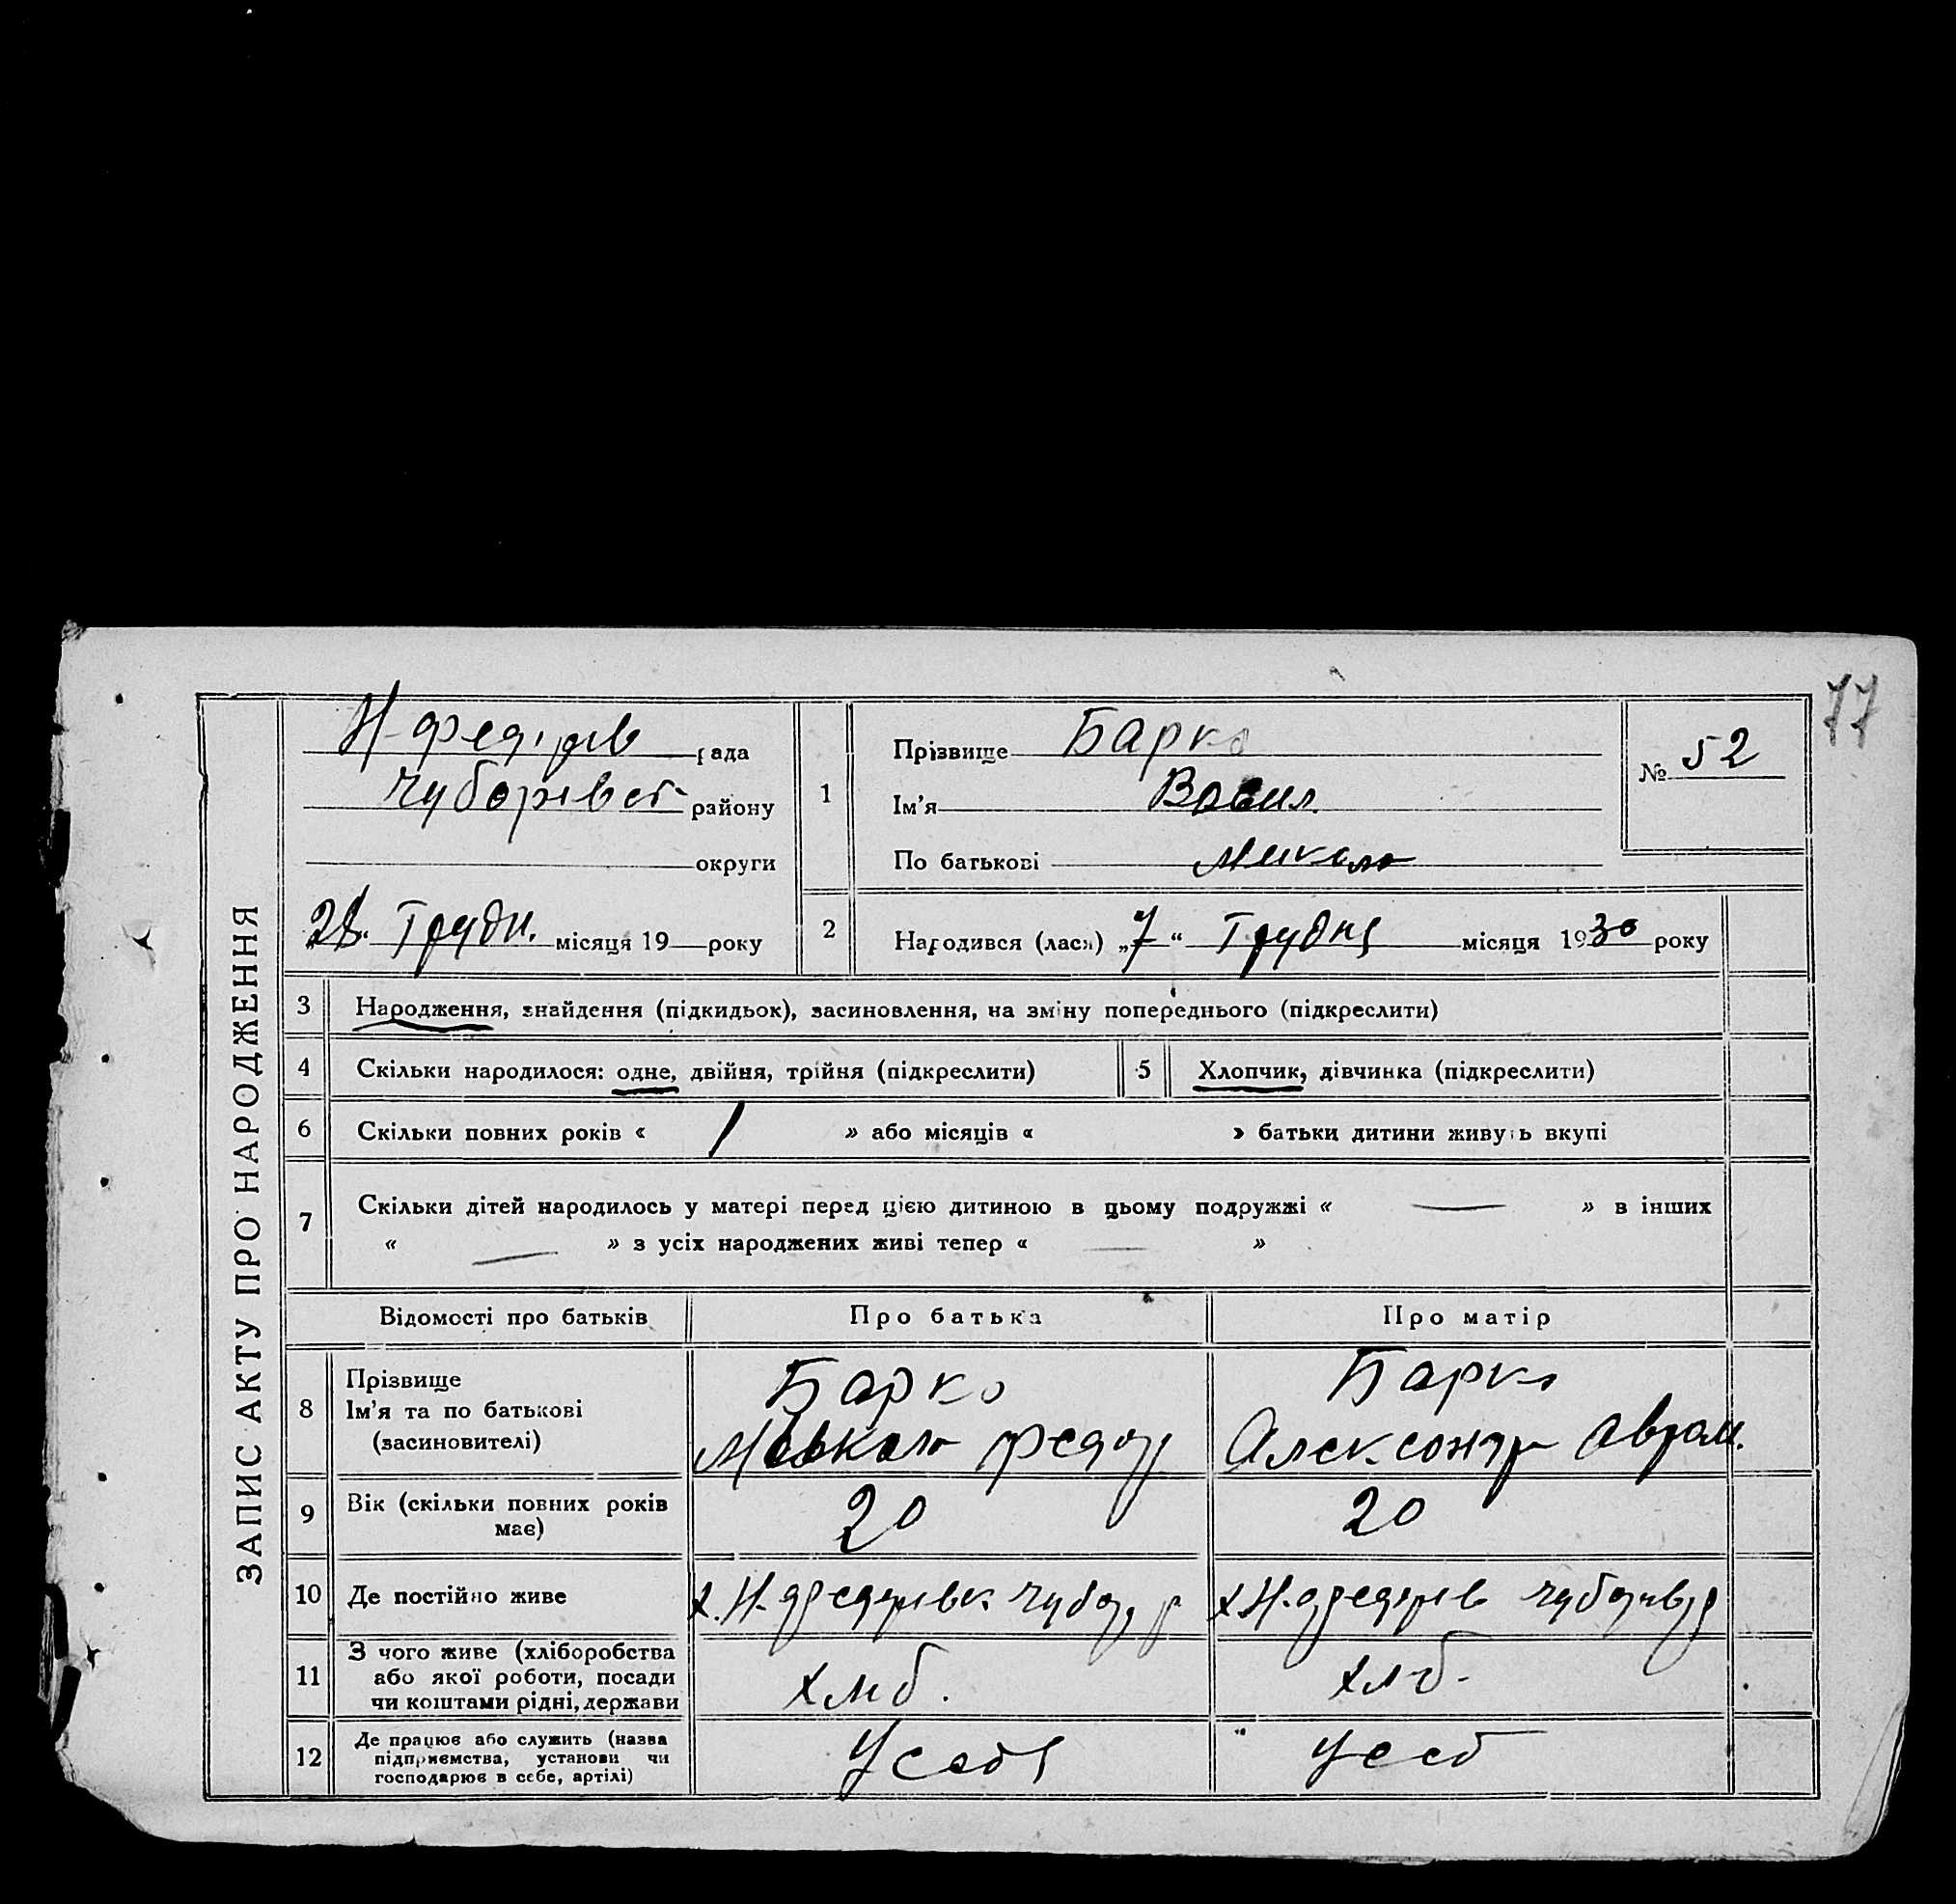 77
ЗАПИС АКТУ ПРО НАРОДЖЕННЯ
Н-Федорів рада
Чубарівсь району
округи
28. Грудн. місяця 19 року
1
Прізвище Барко
Ім'я Васил.
По батькові Микола
№ 52
2
Народився (лася) „7“ Грудня місяця 1930 року
3 Народження, знайдення (підкидьок), засиновлення, на зміну попереднього (підкреслити)
4 Скільки народилося: одне, двійня, трійня (підкреслити)
5 Хлопчик, дівчинка (підкреслити)
6 Скільки повних років « 1 » або місяців « » батьки дитини живуть вкупі
7 Скільки дітей народилось у матері перед цією дитиною в цьому подружжі « — » в інших
« — » з усіх народжених живі тепер « — »
Відомості про батьків Про батька Про матір
8 Прізвище
Ім'я та по батькові
(засиновителі)
Барко
Микола Федор
Барко
Александр Аврам.
9 Вік (скільки повних років
має)
20 20
10 Де постійно живе
х. Н-Федорівк. Чубар. р
х Н-Федорів Чубарів р
11 З чого живе (хліборобства
або якої роботи, посади
чи коштами рідні, держави
хліб. хлб.
12 Де працює або служить (назва
підприємства, установи чи
господарює в себе, артілі)
У себе У себ